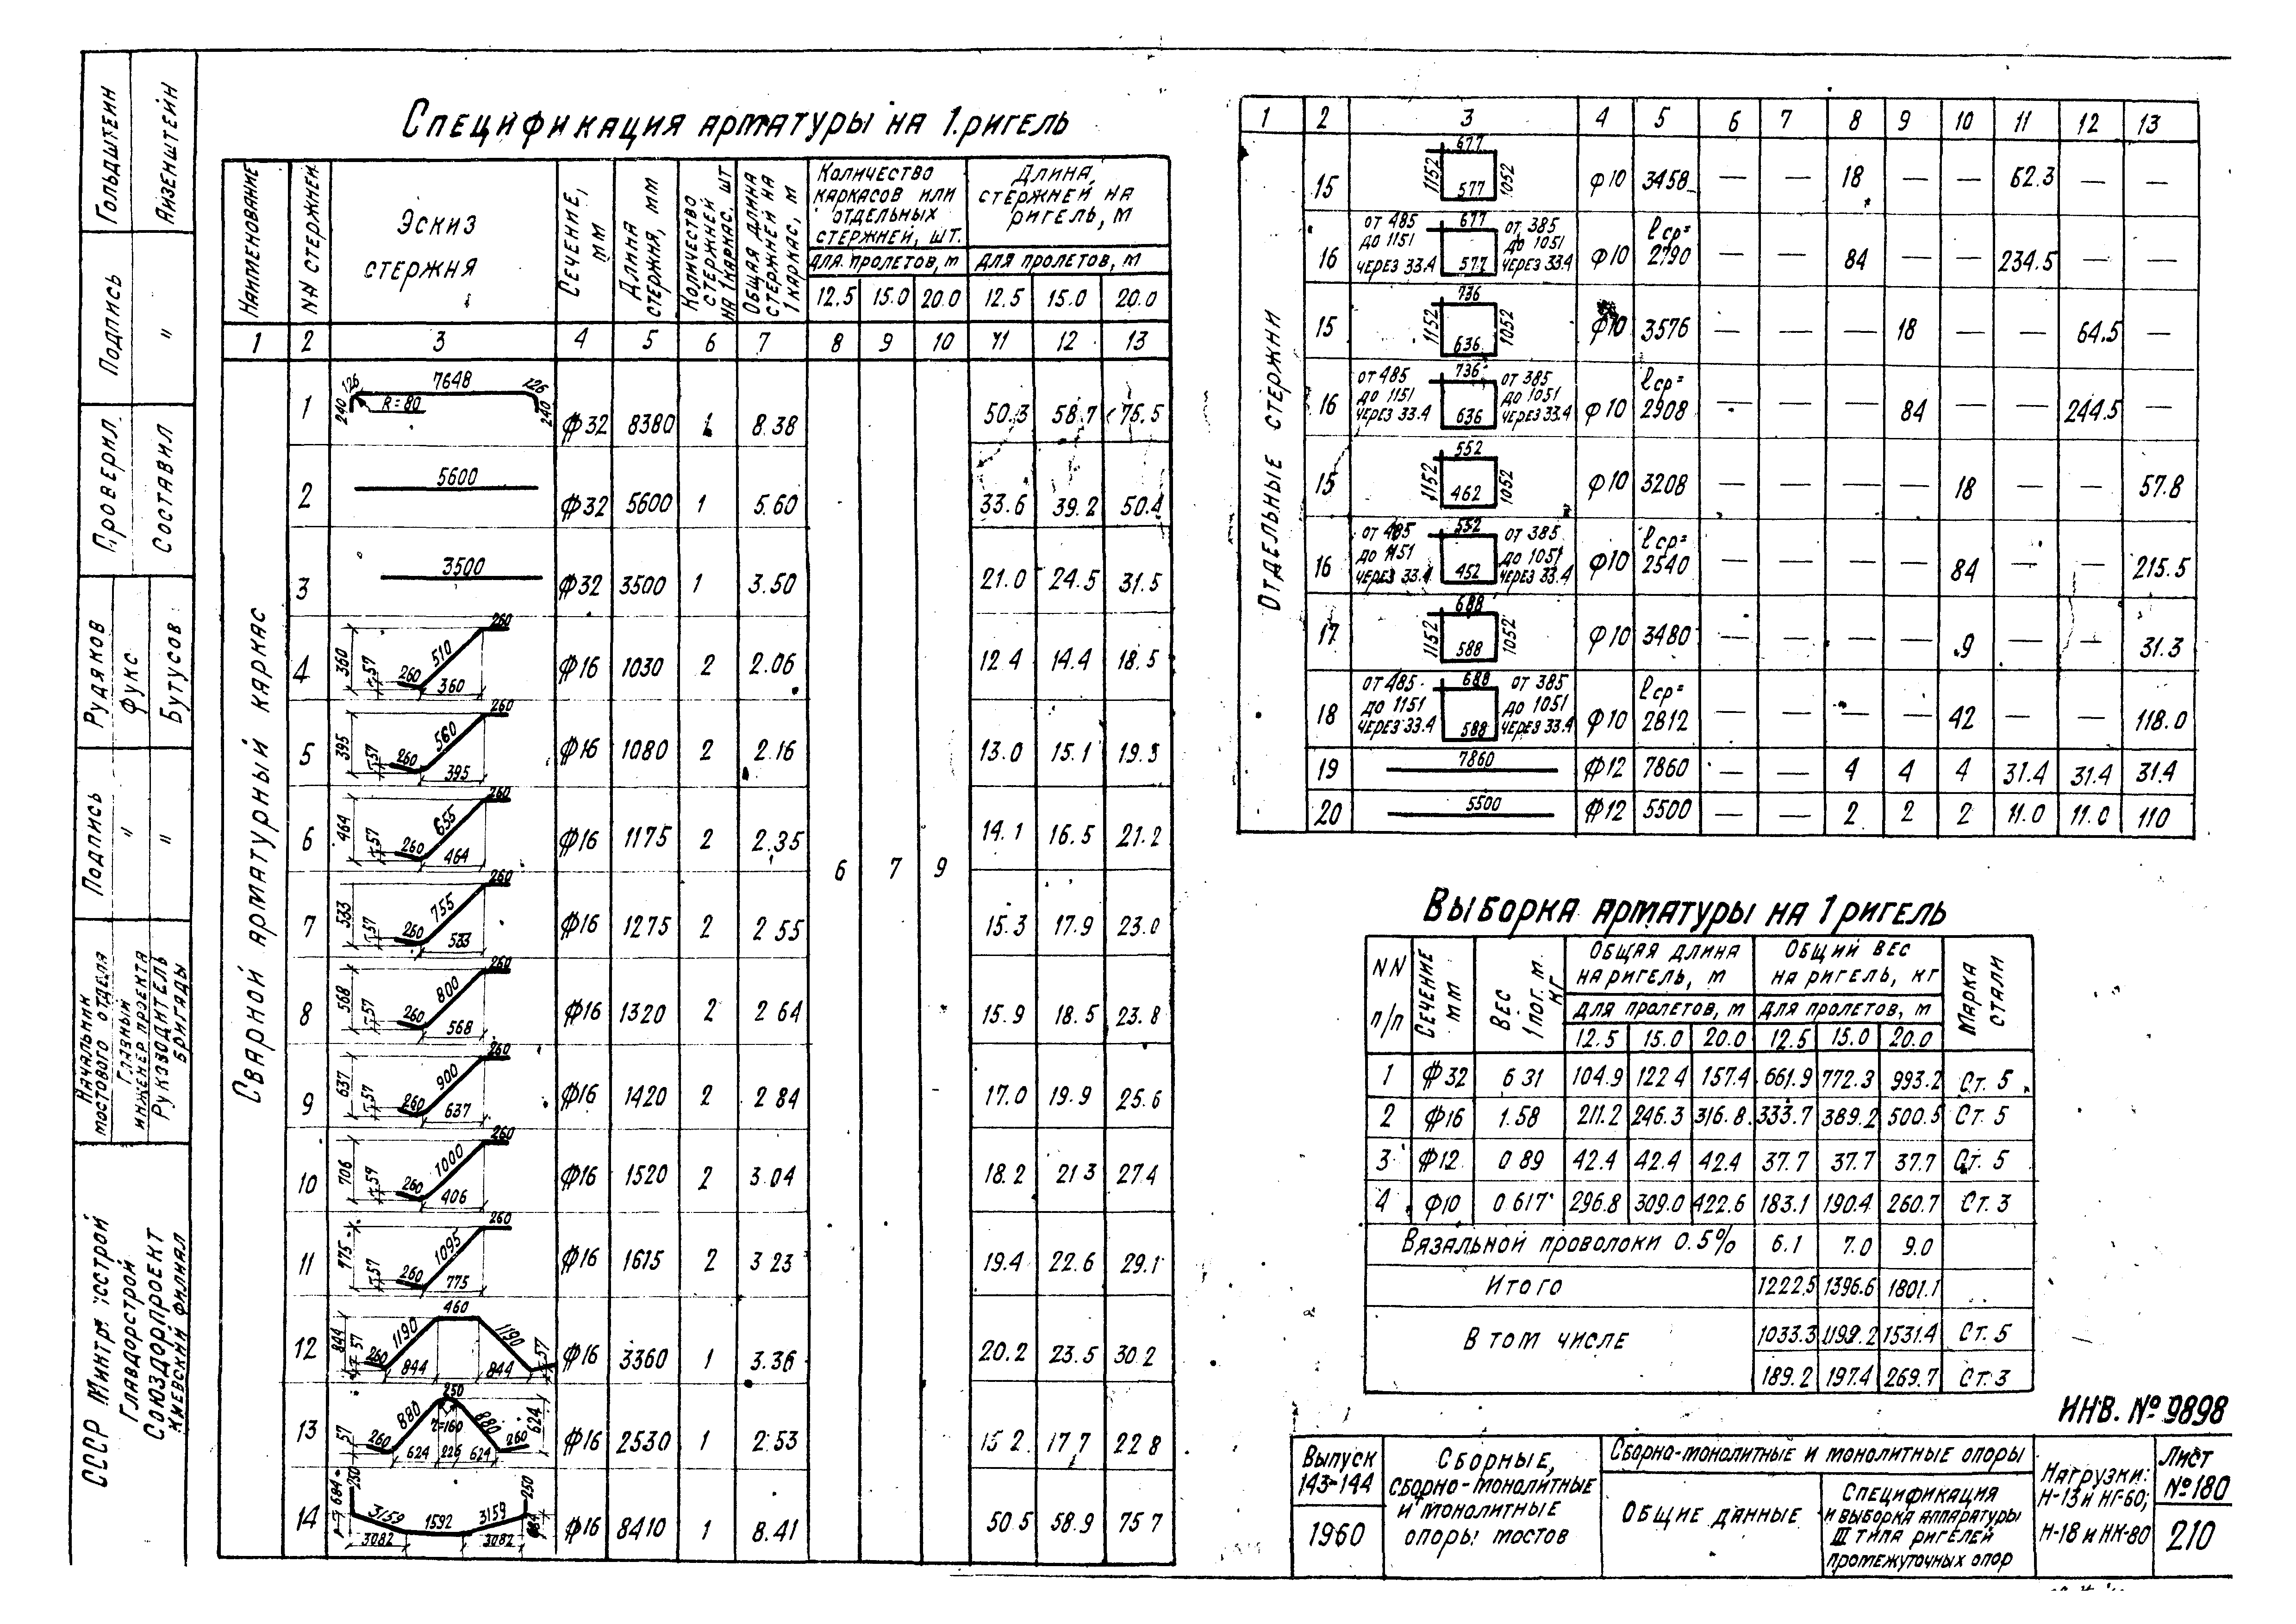 Спецификация арматуры на 1 ригель
Наименование
NN стержней
Эскиз стержня
Сечение, мм
Длина стержня, мм
Количество стержней на 1 каркас, шт
Общая длина стержней на 1 каркас, м
Количество каркасов или отдельных стержней, шт.
Длина стержней на ригель, м
для пролетов, м
для пролетов, м
12.5 15.0 20.0 12.5 15.0 20.0
1 2 3 4 5 6 7 8 9 10 11 12 13
Сварной арматурный каркас
6 7 9
1 240 126 7648 126 240 R=80 ф32 8380 1 8.38 50.3 58.7 75.5
2 5600 ф32 5600 1 5.60 33.6 39.2 50.4
3 3500 ф32 3500 1 3.50 21.0 24.5 31.5
4 360 57 260 510 260 360 ф16 1030 2 2.06 12.4 14.4 18.5
5 395 57 260 560 260 395 ф16 1080 2 2.16 13.0 15.1 19.3
6 464 57 260 655 260 464 ф16 1175 2 2.35 14.1 16.5 21.2
7 533 57 260 755 260 533 ф16 1275 2 2.55 15.3 17.9 23.0
8 568 57 260 800 260 568 ф16 1320 2 2.64 15.9 18.5 23.8
9 637 57 260 900 260 637 ф16 1420 2 2.84 17.0 19.9 25.6
10 706 59 260 1000 260 406 ф16 1520 2 3.04 18.2 21.3 27.4
11 775 57 260 1095 260 775 ф16 1615 2 3.23 19.4 22.6 29.1
12 844 57 260 1190 460 1190 57 844 844 ф16 3360 1 3.36 20.2 23.5 30.2
13 57 260 880 250 r=160 880 260 624 624 226 624 ф16 2530 1 2.53 15.2 17.7 22.8
14 684 250 3159 1592 3159 250 684 3082 3082 ф16 8410 1 8.41 50.5 58.9 75.7
1 2 3 4 5 6 7 8 9 10 11 12 13
Отдельные стержни
15 677 1152 577 1052 ф10 3458 — — 18 — — 62.3 — —
16 от 485 до 1151 через 33.4 677 577 от 385 до 1051 через 33.4 ф10 lср= 2790 — — 84 — — 234.5 — —
15 736 1152 636 1052 ф10 3576 — — — 18 — — 64.5 —
16 от 485 до 1151 через 33.4 736 636 от 385 до 1051 через 33.4 ф10 lср= 2908 — — — 84 — — 244.5 —
15 552 1152 462 1052 ф10 3208 — — — — 18 — — 57.8
16 от 485 до 1151 через 33.4 552 452 от 385 до 1051 через 33.4 ф10 lср= 2540 — — — — 84 — — 215.5
17 688 1152 588 1052 ф10 3480 — — — — 9 — — 31.3
18 от 485 до 1151 через 33.4 688 588 от 385 до 1051 через 33.4 ф10 lср= 2812 — — — — 42 — — 118.0
19 7860 ф12 7860 — — 4 4 4 31.4 31.4 31.4
20 5500 ф12 5500 — — 2 2 2 11.0 11.0 110
Выборка арматуры на 1 ригель
NN п/п
Сечение мм
Вес 1 пог. м. кг
Общая длина на ригель, м
Общий вес на ригель, кг
Марка стали
для пролетов, м для пролетов, м
12.5 15.0 20.0 12.5 15.0 20.0
1 ф32 6.31 104.9 122.4 157.4 661.9 772.3 993.2 Ст. 5
2 ф16 1.58 211.2 246.3 316.8 333.7 389.2 500.5 Ст. 5
3 ф12 0.89 42.4 42.4 42.4 37.7 37.7 37.7 Ст. 5
4 ф10 0.617 296.8 309.0 422.6 183.1 190.4 260.7 Ст. 3
Вязальной проволоки 0.5% 6.1 7.0 9.0
Итого 1222.5 1396.6 1801.1
В том числе 1033.3 1199.2 1531.4 Ст. 5
189.2 197.4 269.7 Ст. 3
ИНВ. № 9898
Выпуск 143-144
1960
Сборные, сборно-монолитные и монолитные опоры мостов
Сборно-монолитные и монолитные опоры
Общие данные
Спецификация и выборка арматуры III типа ригелей промежуточных опор
Нагрузки: Н-13 и НГ-60; Н-18 и НК-80
Лист № 180
210
Гольдштейн
Айзенштейн
Подпись
"
Проверил
Составил
Рудяков
Фукс
Бутусов
Подпись
"
"
Начальник мостового отдела
Главный инженер проекта
Руководитель бригады
СССР
Главдорстрой
Союздорпроект
Киевский филиал